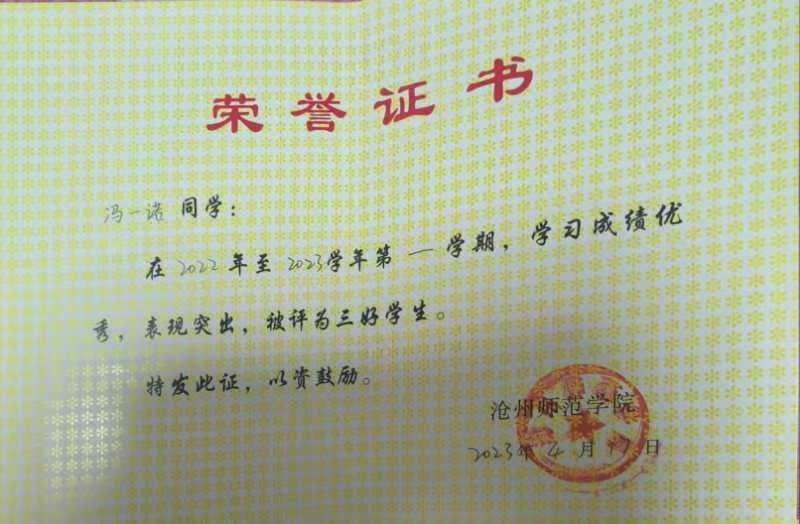 荣誉证书
冯一诺 同学：
在 2022 年至 2023学年第 一 学期，学习成绩优
秀，表现突出，被评为三好学生。
特发此证，以资鼓励。
沧州师范学院
2023年 4 月 17 日